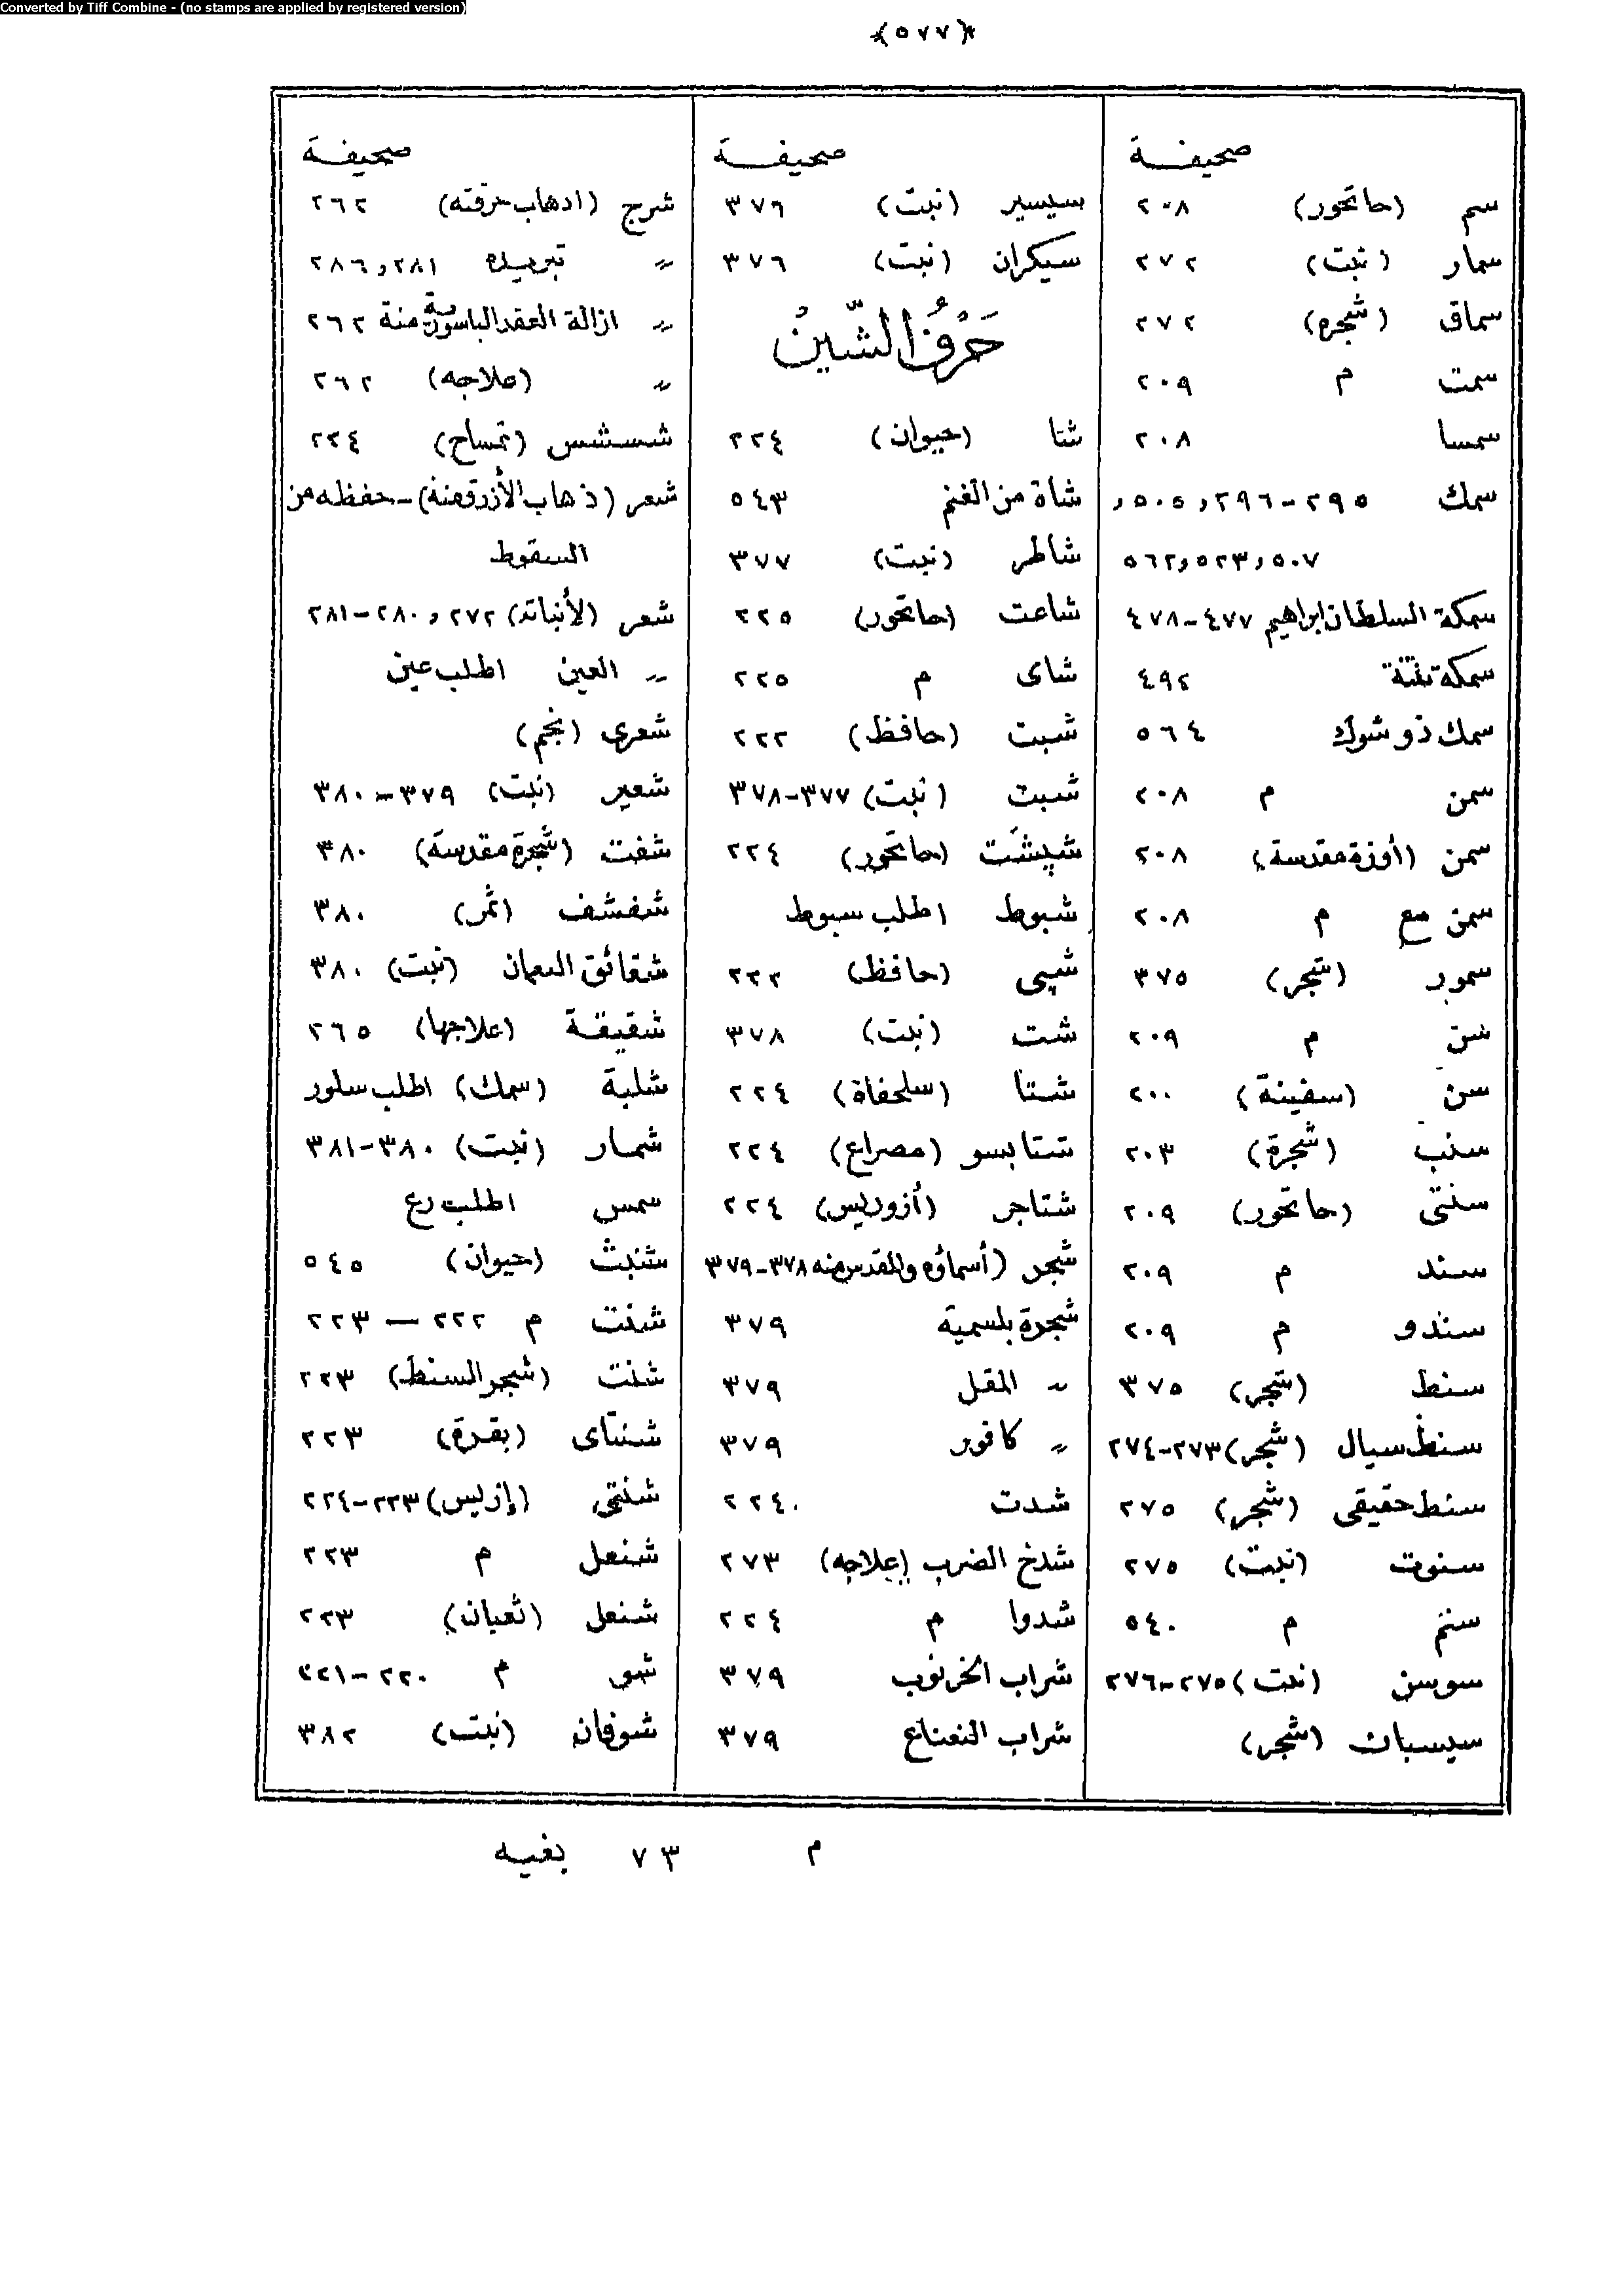 Converted by Tiff Combine - (no stamps are applied by registered version)
﴿٥٧٧﴾
صحيفة
سم (حاتحور) ٢٠٨
سمار (نبت) ٢٧٢
سماق (شجره) ٢٧٢
سمت م ٢٠٩
سمسا ٢٠٨
سمك ٢٩٥-٢٩٦و٥٠٥و
٥٠٧و٥٢٣و٥٦٢
سمكة السلطان ابراهيم ٤٧٧-٤٧٨
سمكة نتنة ٤٩٢
سمك ذو شوك ٥٦٤
سمن م ٢٠٨
سمن (أوزة مقدسة) ٢٠٨
سمن مع م ٢٠٨
سمور (شجر) ٣٧٥
سن م ٢٠٩
سن (سفينة) ٢٠٠
سنب (شجرة) ٢٠٣
سنتى (حاتحور) ٢٠٩
سند م ٢٠٩
سندو م ٢٠٩
سنط (شجر) ٣٧٥
سنط سيال (شجر) ٢٧٣-٢٧٤
سنط حقيقى (شجر) ٢٧٥
سنوت (نبت) ٢٧٥
سنم م ٥٤٠
سوسن (نبت) ٢٧٥-٢٧٦
سيسبان (شجر)
صحيفة
سيسير (نبت) ٣٧٦
سيكران (نبت) ٣٧٦
حَرْفُ الشِّينُ
شا (حيوان) ٢٢٤
شاة من الغنم ٥٤٣
شاطر (نبت) ٣٧٧
شاعت (حاتحور) ٢٢٥
شاى م ٢٢٥
شبت (حافظ) ٢٢٢
شبت (نبت) ٣٧٧-٣٧٨
شپشت (حاتحور) ٢٢٤
شبوط اطلب سبوط
شپى (حافظ) ٢٢٢
شت (نبت) ٣٧٨
شتا (سلحفاة) ٢٢٤
شتا بسو (مصراع) ٢٢٤
شتاجر (أزوريس) ٢٢٤
شجر (أسماؤه والمقدس منه ٣٧٨-٣٧٩
شجرة بلسمية ٣٧٩
〃 المقل ٣٧٩
〃 كافور ٣٧٩
شدت ٢٢٤
شدخ الضرب (علاجه) ٢٧٣
شدوا م ٢٢٤
شراب الخرنوب ٣٧٩
شراب النعناع ٣٧٩
صحيفة
شرج (اذهاب حرقته) ٢٦٢
〃 تبريده ٢٨١و٢٨٦
〃 ازالة العقد الباسورية منة ٢٦٢
〃 (علاجه) ٢٦٢
شسشس (تمساح) ٢٢٤
شعر (ذهاب الأزرق منه) - حفظه من
السقوط
شعر (لأنباته) ٢٧٢و٢٨٠-٢٨١
〃 العين اطلب عين
شعرى (نجم)
شعير (نبت) ٣٧٩-٣٨٠
شفت (شجرة مقدسة) ٣٨٠
شفشف (ثمر) ٣٨٠
شقائق النعمان (نبت) ٣٨٠
شقيقة (علاجها) ٢٦٥
شلبة (سمك) اطلب سلور
شمار (نبت) ٣٨٠-٣٨١
سمس اطلب رع
شنبث (حيوان) ٥٤٥
شنت م ٢٢٢-٢٢٣
شنت (شجر السنط) ٢٢٣
شنتاى (بقرة) ٢٢٣
شنتى (إزيس) ٢٢٣-٢٢٤
شنعل م ٢٢٣
شنعل (ثعبان) ٢٢٣
شو م ٢٢٠-٢٢١
شوفان (نبت) ٣٨٢
م ٧٣ بغيه